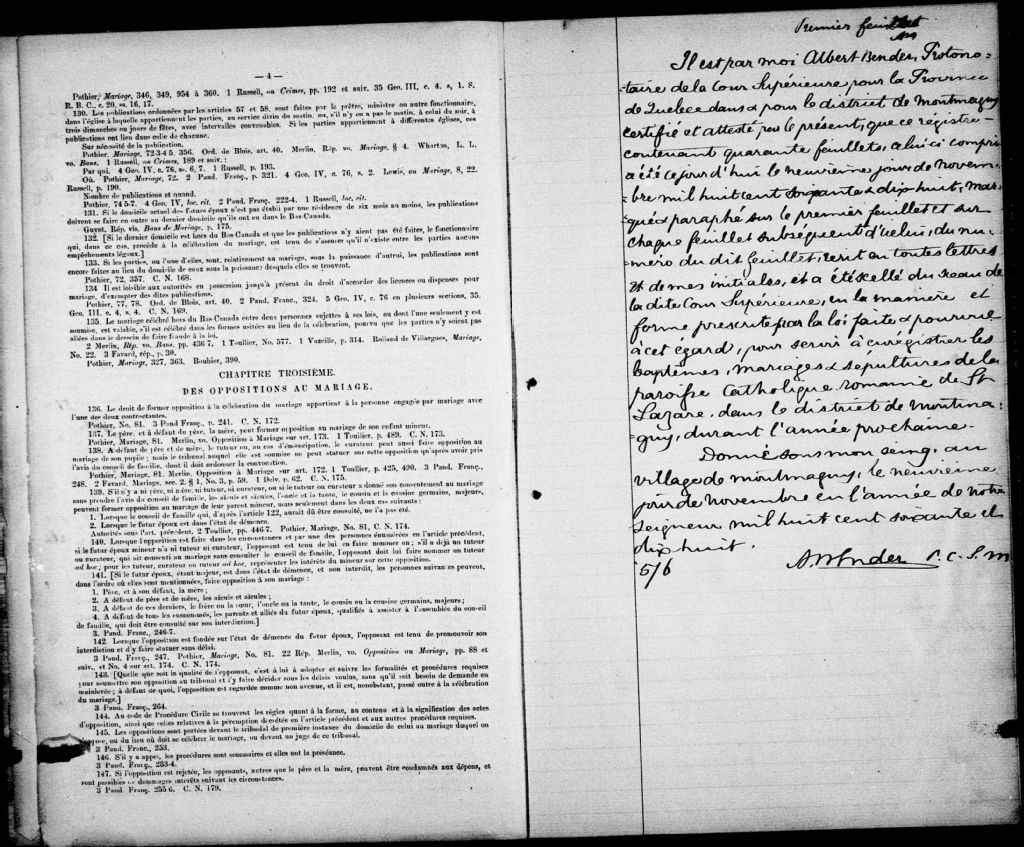 — 4 —
Pothier, Mariage, 346, 349, 954 à 360. 1 Russell, on Crimes, pp. 192 et suiv. 35 Geo. III, c. 4. s, 1. S.
R. B. C., c. 20, ss. 16, 17.
130. Les publications ordonnées par les articles 57 et 58, sont faites par le prêtre, ministre ou autre fonctionnaire,
dans l'église à laquelle appartiennent les parties, au service divin du matin, ou, s'il n'y en a pas le matin, à celui du soir, à
trois dimanches ou jours de fêtes, avec intervalles convenables. Si les parties appartiennent à différentes églises, ces
publications ont lieu dans celle de chacune.
Sur nécessité de la publication.
Pothier, Mariage, 72-3-4 5. 356. Ord. de Blois, art. 40. Merlin, Rép. vo. Mariage, § 4. Wharton, L. L.
vo. Bans. 1 Russell, on Crimes, 189 et suiv. ;
Par qui. 4 Geo. IV, c. 76, ss. 6, 7. 1 Russell, p. 193.
Où. Pothier, Mariage, 72. 2 Pand. Franç., p. 321. 4 Geo. IV, c. 76, s. 2. Lewis, on Mariage, 8, 22.
Russell, p. 190.
Nombre de publications et quand.
Pothier, 74 5-7. 4 Geo. IV, loc. cit. 2 Pand. Franç. 222-4. 1 Russell, loc. cit.
131. Si le domicile actuel des futurs époux n'est pas établi par une résidence de six mois au moins, les publications
doivent se faire en outre au dernier domicile qu'ils ont eu dans le Bas-Canada.
Guyot. Rép. vis. Bans de Mariage, p. 175.
132. [Si le dernier domicile est hors du Bas-Canada et que les publications n'y aient pas été faites, le fonctionnaire
qui, dans ce cas, procède à la célébration du mariage, est tenu de s'assurer qu'il n'existe entre les parties aucuns
empêchements légaux.]
133. Si les parties, ou l'une d'elles, sont, relativement au mariage, sous la puissance d'autrui, les publications sont
encore faites au lieu du domicile de ceux sous la puissance desquels elles se trouvent.
Pothier, 72, 357. C. N. 168.
134 Il est loisible aux autorités en possession jusqu'à présent du droit d'accorder des licences ou dispenses pour
mariage, d'exempter des dites publications.
Pothier, 77, 78. Ord. de Blois, art. 40. 2 Pand. Franç., 324. 5 Geo. IV, c. 76 en plusieurs sections, 35.
Geo. III, c. 4, s. 4. C. N. 169.
135. Le mariage célébré hors du Bas-Canada entre deux personnes sujettes à ses lois, ou dont l'une seulement y est
soumise, est valable, s'il est célébré dans les formes usitées au lieu de la célébration, pourvu que les parties n'y soient pas
allées dans le dessein de faire fraude à la loi.
2 Merlin, Rép. vo. Bans. pp. 436 7. 1 Toullier, No. 577. 1 Vazeille, p. 314. Rolland de Villargues, Mariage,
No. 22. 3 Favard, rép., p. 30.
Pothier, Mariage, 327, 363. Bouhier, 390.
CHAPITRE TROISIÈME.
DES OPPOSITIONS AU MARIAGE.
136. Le droit de former opposition à la célébration du mariage appartient à la personne engagée par mariage avec
l'une des deux contractantes.
Pothier, No. 81. 3 Pand Franç., p. 241. C. N. 172.
137. Le père, et à défaut du père, la mère, peut former opposition au mariage de son enfant mineur.
Pothier, Mariage, 81. Merlin, vo. Opposition à Mariage sur art. 173. 1 Toullier, p. 489. C. N. 173.
138. A défaut de père et de mère, le tuteur ou, au cas d'émancipation, le curateur peut aussi faire opposition au
mariage de son pupile ; mais le tribunal auquel elle est soumise ne peut statuer sur cette opposition qu'après avoir pris
l'avis du conseil de famille, dont il doit ordonner la convocation.
Pothier, Mariage, 81. Merlin. Opposition à Mariage sur art. 172. 1 Toullier, p. 425, 490. 3 Pand. Franç.,
248. 2 Favard, Mariage, sec. 2. § 1, No. 3, p. 59. 1 Delv. p. 62. C. N. 175.
139. S'il n'y a ni père, ni mère, ni tuteur, ni curateur, ou si le tuteur ou curateur a donné son consentement au mariage
sans prendre l'avis du conseil de famille, les aïeuls et aïeules, l'oncle et la tante, le cousin et la cousine germains, majeurs,
peuvent former opposition au mariage de leur parent mineur, mais seulement dans les deux cas suivants :
1. Lorsque le conseil de famille qui, d'après l'article 122, aurait dû être consulté, ne l'a pas été.
2. Lorsque le futur époux est dans l'état de démence.
Autorités sous l'art. précédent. 2 Toullier, pp. 446-7. Pothier, Mariage, No. 81, C. N. 174.
140. Lorsque l'opposition est faite dans les circonstances et par une des personnes énumérées en l'article précédent,
si le futur époux mineur n'a ni tuteur ni curateur, l'opposant est tenu de lui en faire nommer un ; s'il a déjà un tuteur
ou curateur, qui ait consenti au mariage sans consulter le conseil de famille, l'opposant doit lui faire nommer un tuteur
ad hoc, pour les tuteur, curateur ou tuteur ad hoc, représenter les intérêts du mineur sur cette opposition.
141. [Si le futur époux, étant majeur, est dans l'état de démence, et non interdit, les personnes suivantes peuvent,
dans l'ordre où elles sont mentionnées, faire opposition à son mariage :
1. Père, et à son défaut, la mère ;
2. A défaut de père et de mère, les aïeuls et aïeules ;
3. A défaut de ces derniers, le frère ou la sœur, l'oncle ou la tante, le cousin ou la cousine germains, majeurs ;
4. A défaut de tous les susnommés, les parents et alliés du futur époux, qualifiés à assister à l'assemblée du conseil
de famille, qui doit être consulté sur son interdiction.]
3. Pand. Franc., 246-7.
142. Lorsque l'opposition est fondée sur l'état de démence du futur époux, l'opposant est tenu de promouvoir son
interdiction et d'y faire statuer sans délai.
3 Pand. Franç., 247. Pothier, Mariage, No. 81. 22 Rép. Merlin, vo. Opposition au Mariage, pp. 88 et
suiv., et No. 4 sur art. 174. C. N. 174.
143. [Quelle que soit la qualité de l'opposant, c'est à lui à adopter et suivre les formalités et procédures requises
pour soumettre son opposition au tribunal et l'y faire décider sous les délais voulus, sans qu'il soit besoin de demande en
mainlevée ; à défaut de quoi, l'opposition est regardée comme non avenue, et il est, nonobstant, passé outre à la célébration
du mariage.]
3 Pand. Franç., 264.
144. Au code de Procédure Civile se trouvent les règles quant à la forme, au contenu et à la signification des actes
d'opposition, ainsi que celles relatives à la péremption décrétée en l'article précédent et aux autres procédures requises.
145. Les oppositions sont portées devant le tribunal de première instance du domicile de celui au mariage duquel on
s'oppose, ou du lieu où doit se célébrer le mariage, ou devant un juge de ce tribunal.
3 Pand. Franc., 253.
146. S'il y a appel, les procédures sont sommaires et elles ont la préséance.
3 Pand. Franç., 253-4.
147. Si l'opposition est rejetée, les opposants, autres que le père et la mère, peuvent être condamnés aux dépens, et
sont passibles de dommages intérêts suivant les circonstances.
3 Pand. Franç. 255 6. C. N. 179.
Premier feuillet
Il est par moi Albert Bender, Protono-
taire de la Cour Supérieure pour la Province
de Quebec dans & pour le district de Montmagny
certifié et attesté par le présent, que ce régistre
contenant quarante feuillets, celui ci compris
a été ce jour d'hui le neuvième jour de Novem-
bre mil huit cent soixante & dix huit, mar-
qué & paraphé sur le premier feuillet et sur
chaque feuillet subséquent d'icelui, du nu-
méro du dit feuillet, écrit en toutes lettres
& de mes initiales, et a été scellé du sceau de
la dite Cour Supérieure, en la manière et
forme prescrite par la loi faite & pourvue
à cet égard, pour servir à enrégistrer les
baptêmes, mariages & sépultures de la
paroisse Catholique romaine de St
Lazare, dans le district de Montma-
gny, durant l'année prochaine.
Donné sous mon seing, au
village de Montmagny, le neuvième
jour de Novembre en l'année de notre
Seigneur mil huit cent soixante et
dix huit.
5/6
A Bender P. C. S. M